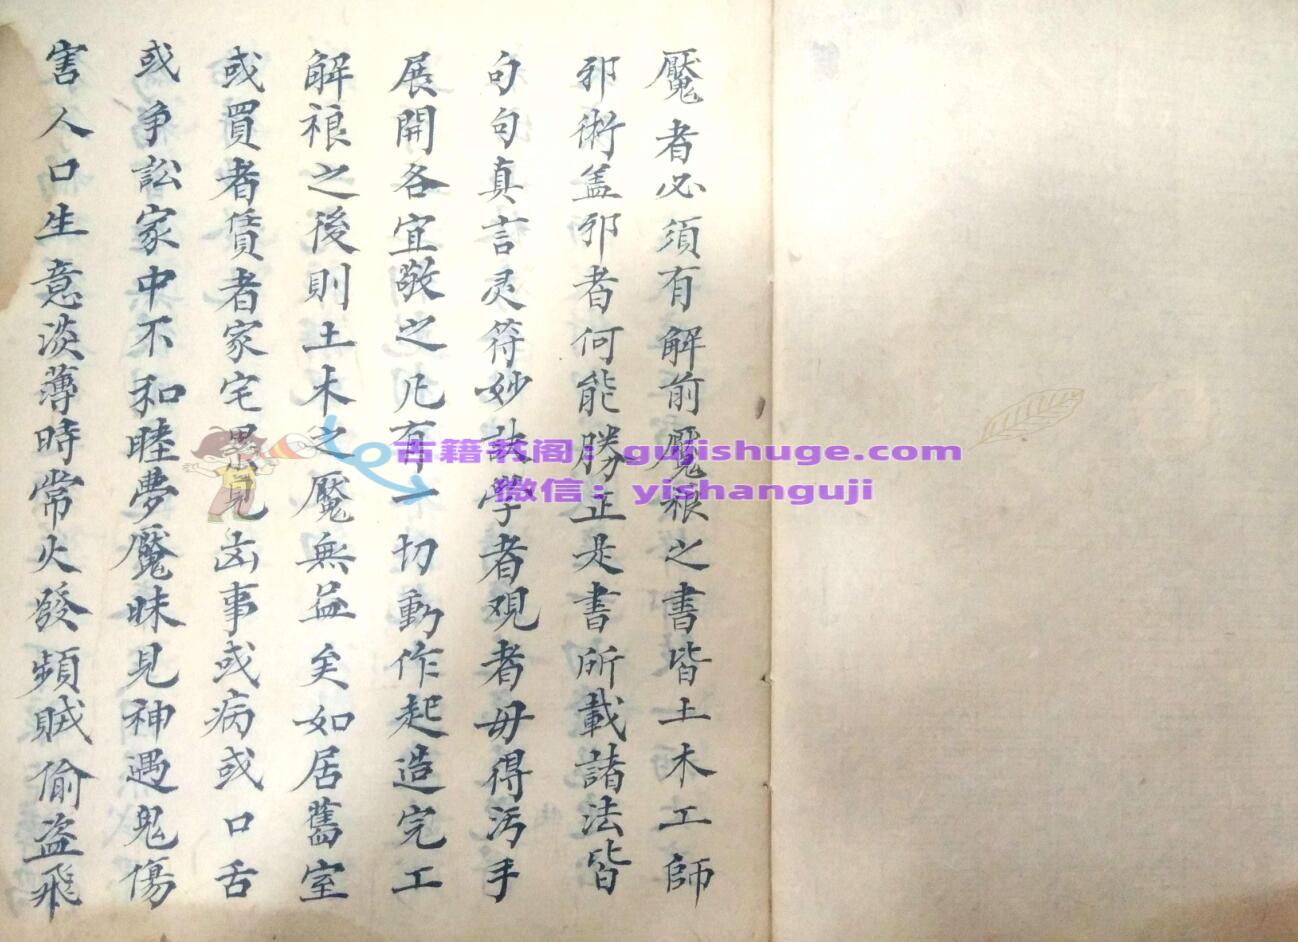 魘者必須有解前魘禳之書皆土木工師
邪術盖邪者何能勝正是書所載諸法皆
句句真言灵符妙訣學者观者毋得污手
展開各宜敬之凡有一切動作起造完工
解禳之後則土木之魘無益矣如居舊室
或買者賃者家宅累見凶事或病或口舌
或争訟家中不和睦夢魘昧見神遇鬼傷
害人口生意淡薄時常火發頻賊偷盗飛
古籍书阁：gujishuge.com
微信：yishanguji